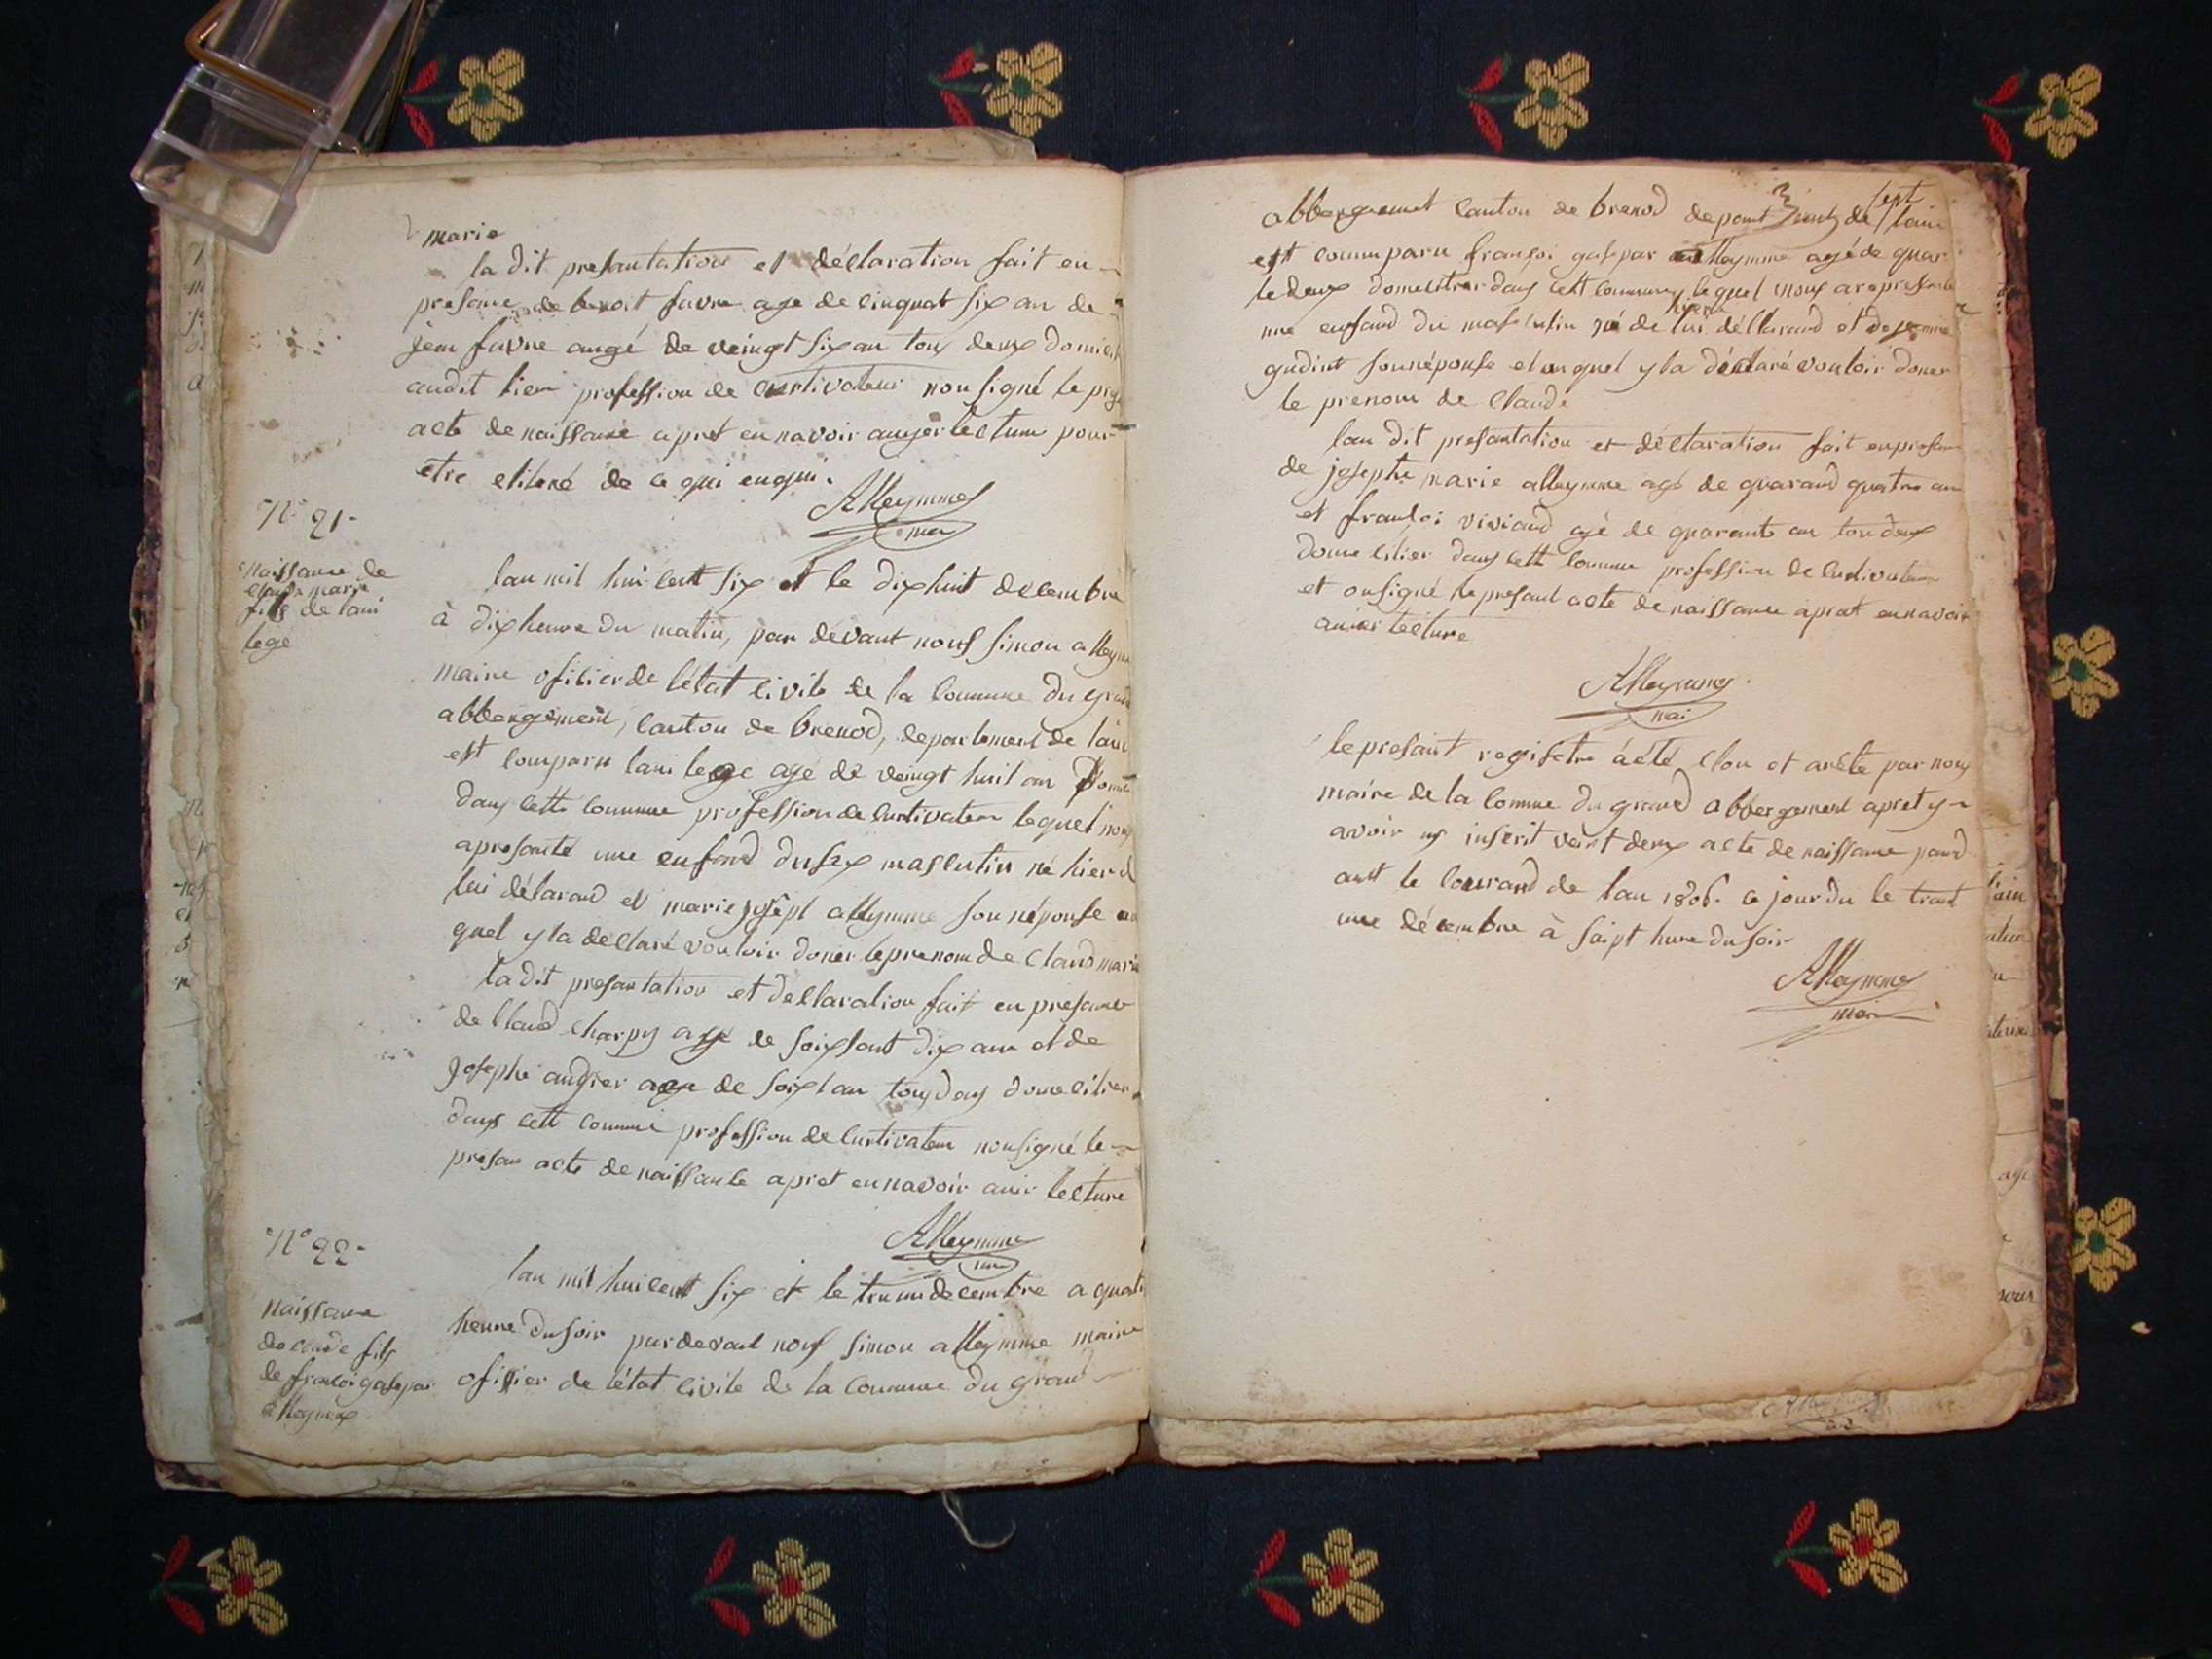 marie
la dit presantation et déclaration fait en
presance de benoit favre age de cinquat six an de
jean favre augé de veingt six an tous deux domicil
audit lieu profession de curtivateur non signé le pres
acte de naissance apret en navoir auyer lecture pour
etre eliberé de ce qui enqui.
Alleymme
mer
N° 21-
naissance de
claude marie
fils de laui
lege
lan mil hui cent six et le dixhuit decembre
à dix heure du matin, par devant nous simon alleym
maire ofisier de létat civile de la commune du grand
abbergement, canton de brenod, departement de lain
est comparu laui lege agé de veingt huit an domici
dans cette commune profession de curtivateur lequel nous
apresanté une enfand du sex masculutin né hier d
lui déclarand et marie joseph alleymme son néponse au
quel y la declaré vouloir doner le prenom de claud marie
la dit presantation et declaration fait en presance
de claud charpy agé de soixsant dix ans et de
josephe augier age de soixt an tous daux domecilier
dans cett commune profession de curtivateur non signé le
presan acte de naissance apret en navoir auir lecture
Alleymme
mer
N° 22-
naissance
de claude fils
de francoi gaspar
alleymme
lan mil hui cent six et le trenun decembre a quatr
heure du soir par devant nous simon alleymme maire
ofissier de létat civile de la commune du grand
abbergement canton de brenod depart ment de lain
est coumparu françoi gaspar alleymme agé de quar
te deux domecilier dans cett commune lequel nous a represante
une enfand du masculutin né de hier lui déclarand et de jeanne
gudint son néponse et auquel y la déclaré vouloir doner
le prenom de claude
lau dit presantation et déclaration fait en presance
de josephe marie alleymme agé de quarand quatre an
et francoi viviand agé de quarante an tou deux
domecilier dans cett commune profession de curtivateur
et on signé le presant acte de naissance apret en navoir
auier lecture
Alleymme
mai
le presant registre áété clou et arété par nous
maire de la comune du grand abbergement apret y
avoir inscrit veint deux acte de naissance pand
ant le courand de lan 1806. ce jourdu le trant
une décembre à saipt hure du soir
Alleymme
mer